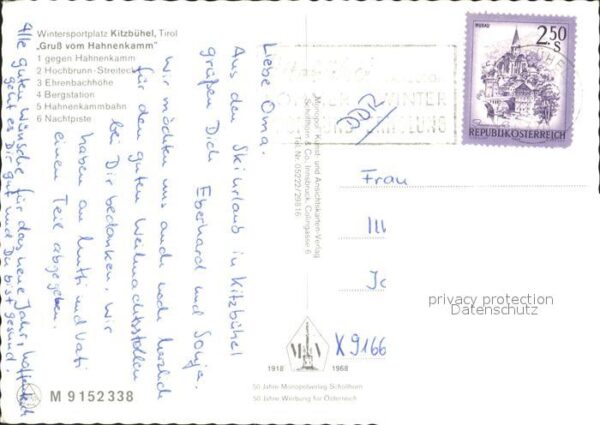 Wintersportplatz Kitzbühel, Tirol
„Gruß vom Hahnenkamm“
1 gegen Hahnenkamm
2 Hochbrunn-Streiteck
3 Ehrenbachhöhe
4 Bergstation
5 Hahnenkammbahn
6 Nachtpiste
Liebe Oma.
Aus den Skiurlaub in Kitzbühel
grüßen Dich Eberhard und Sonja.
Wir möchten uns auch noch herzlich
für den guten Weihnachtsstollen
bei Dir bedanken, wir
haben an Mutti und Vati
einen Teil abgegeben.
Alle guten Wünsche für das neue Jahr, hoffentlich
geht es Dir gut und Du bist gesund.
M 9152338
Monopol-, Kunst- und Ansichtskarten-Verlag
Schöllhorn & Co. Innsbruck, Colingasse 6
Tel. Nr. 05222/29816
1918
1968
50 Jahre Monopolverlag Schöllhorn
50 Jahre Werbung für Österreich
WINTER
DDR
MURAU
2.50
S
REPUBLIK ÖSTERREICH
Frau
privacy protection
Datenschutz
X 9166